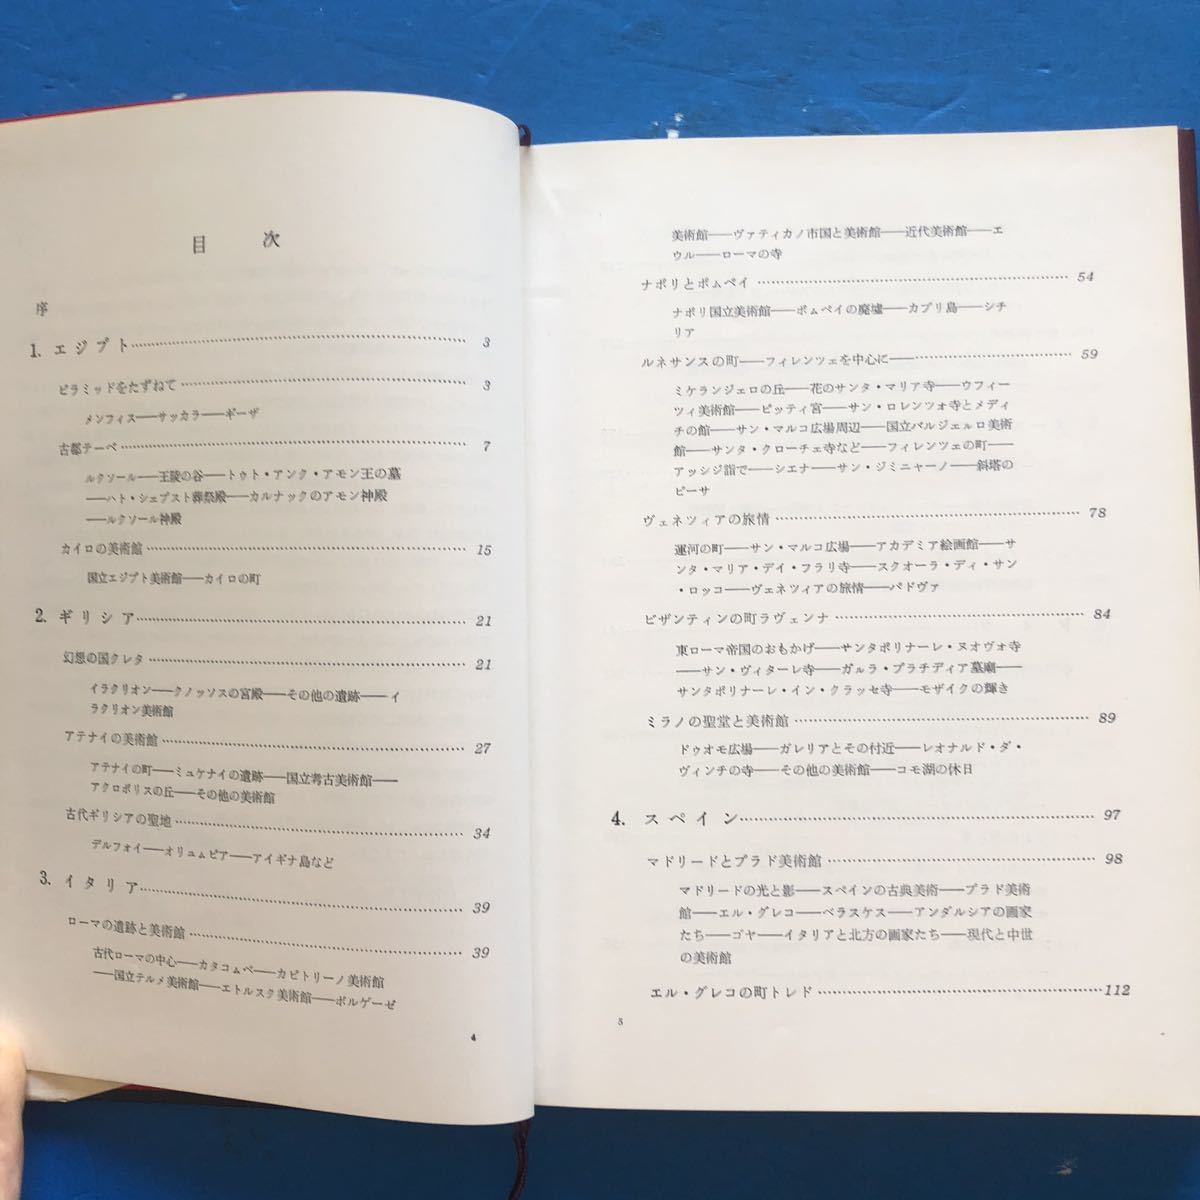 目　次
序
1. エジプト……3
ピラミッドをたずねて……3
メンフィス――サッカラ――ギーザ
古都テーベ……7
ルクソール――王陵の谷――トゥト・アンク・アモン王の墓
――ハト・シェプスト葬祭殿――カルナックのアモン神殿
――ルクソール神殿
カイロの美術館……15
国立エジプト美術館――カイロの町
2. ギリシア……21
幻想の国クレタ……21
イラクリオン――クノッソスの宮殿――その他の遺跡――イ
ラクリオン美術館
アテナイの美術館……27
アテナイの町――ミュケナイの遺跡――国立考古美術館――
アクロポリスの丘――その他の美術館
古代ギリシアの聖地……34
デルフォイ――オリュムピア――アイギナ島など
3. イタリア……39
ローマの遺跡と美術館……39
古代ローマの中心――カタコムベ――カピトリーノ美術館
――国立テルメ美術館――エトルスク美術館――ボルゲーゼ
4
美術館――ヴァティカノ市国と美術館――近代美術館――エ
ウル――ローマの寺
ナポリとポムペイ……54
ナポリ国立美術館――ポムペイの廃墟――カプリ島――シチ
リア
ルネサンスの町――フィレンツェを中心に――……59
ミケランジェロの丘――花のサンタ・マリア寺――ウフィー
ツィ美術館――ピッティ宮――サン・ロレンツォ寺とメディ
チの館――サン・マルコ広場周辺――国立バルジェルロ美術
館――サンタ・クローチェ寺など――フィレンツェの町――
アッシジ詣で――シエナ――サン・ジミニャーノ――斜塔の
ピーサ
ヴェネツィアの旅情……78
運河の町――サン・マルコ広場――アカデミア絵画館――サ
ンタ・マリア・デイ・フラリ寺――スクオーラ・ディ・サン
・ロッコ――ヴェネツィアの旅情――パドヴァ
ビザンティンの町ラヴェンナ……84
東ローマ帝国のおもかげ――サンタポリナーレ・ヌオヴォ寺
――サン・ヴィターレ寺――ガルラ・プラチディア墓廟――
サンタポリナーレ・イン・クラッセ寺――モザイクの輝き
ミラノの聖堂と美術館……89
ドゥオモ広場――ガレリアとその付近――レオナルド・ダ・
ヴィンチの寺――その他の美術館――コモ湖の休日
4. スペイン……97
マドリードとプラド美術館……98
マドリードの光と影――スペインの古典美術――プラド美術
館――エル・グレコ――ベラスケス――アンダルシアの画家
たち――ゴヤ――イタリアと北方の画家たち――現代と中世
の美術館
エル・グレコの町トレド……112
5